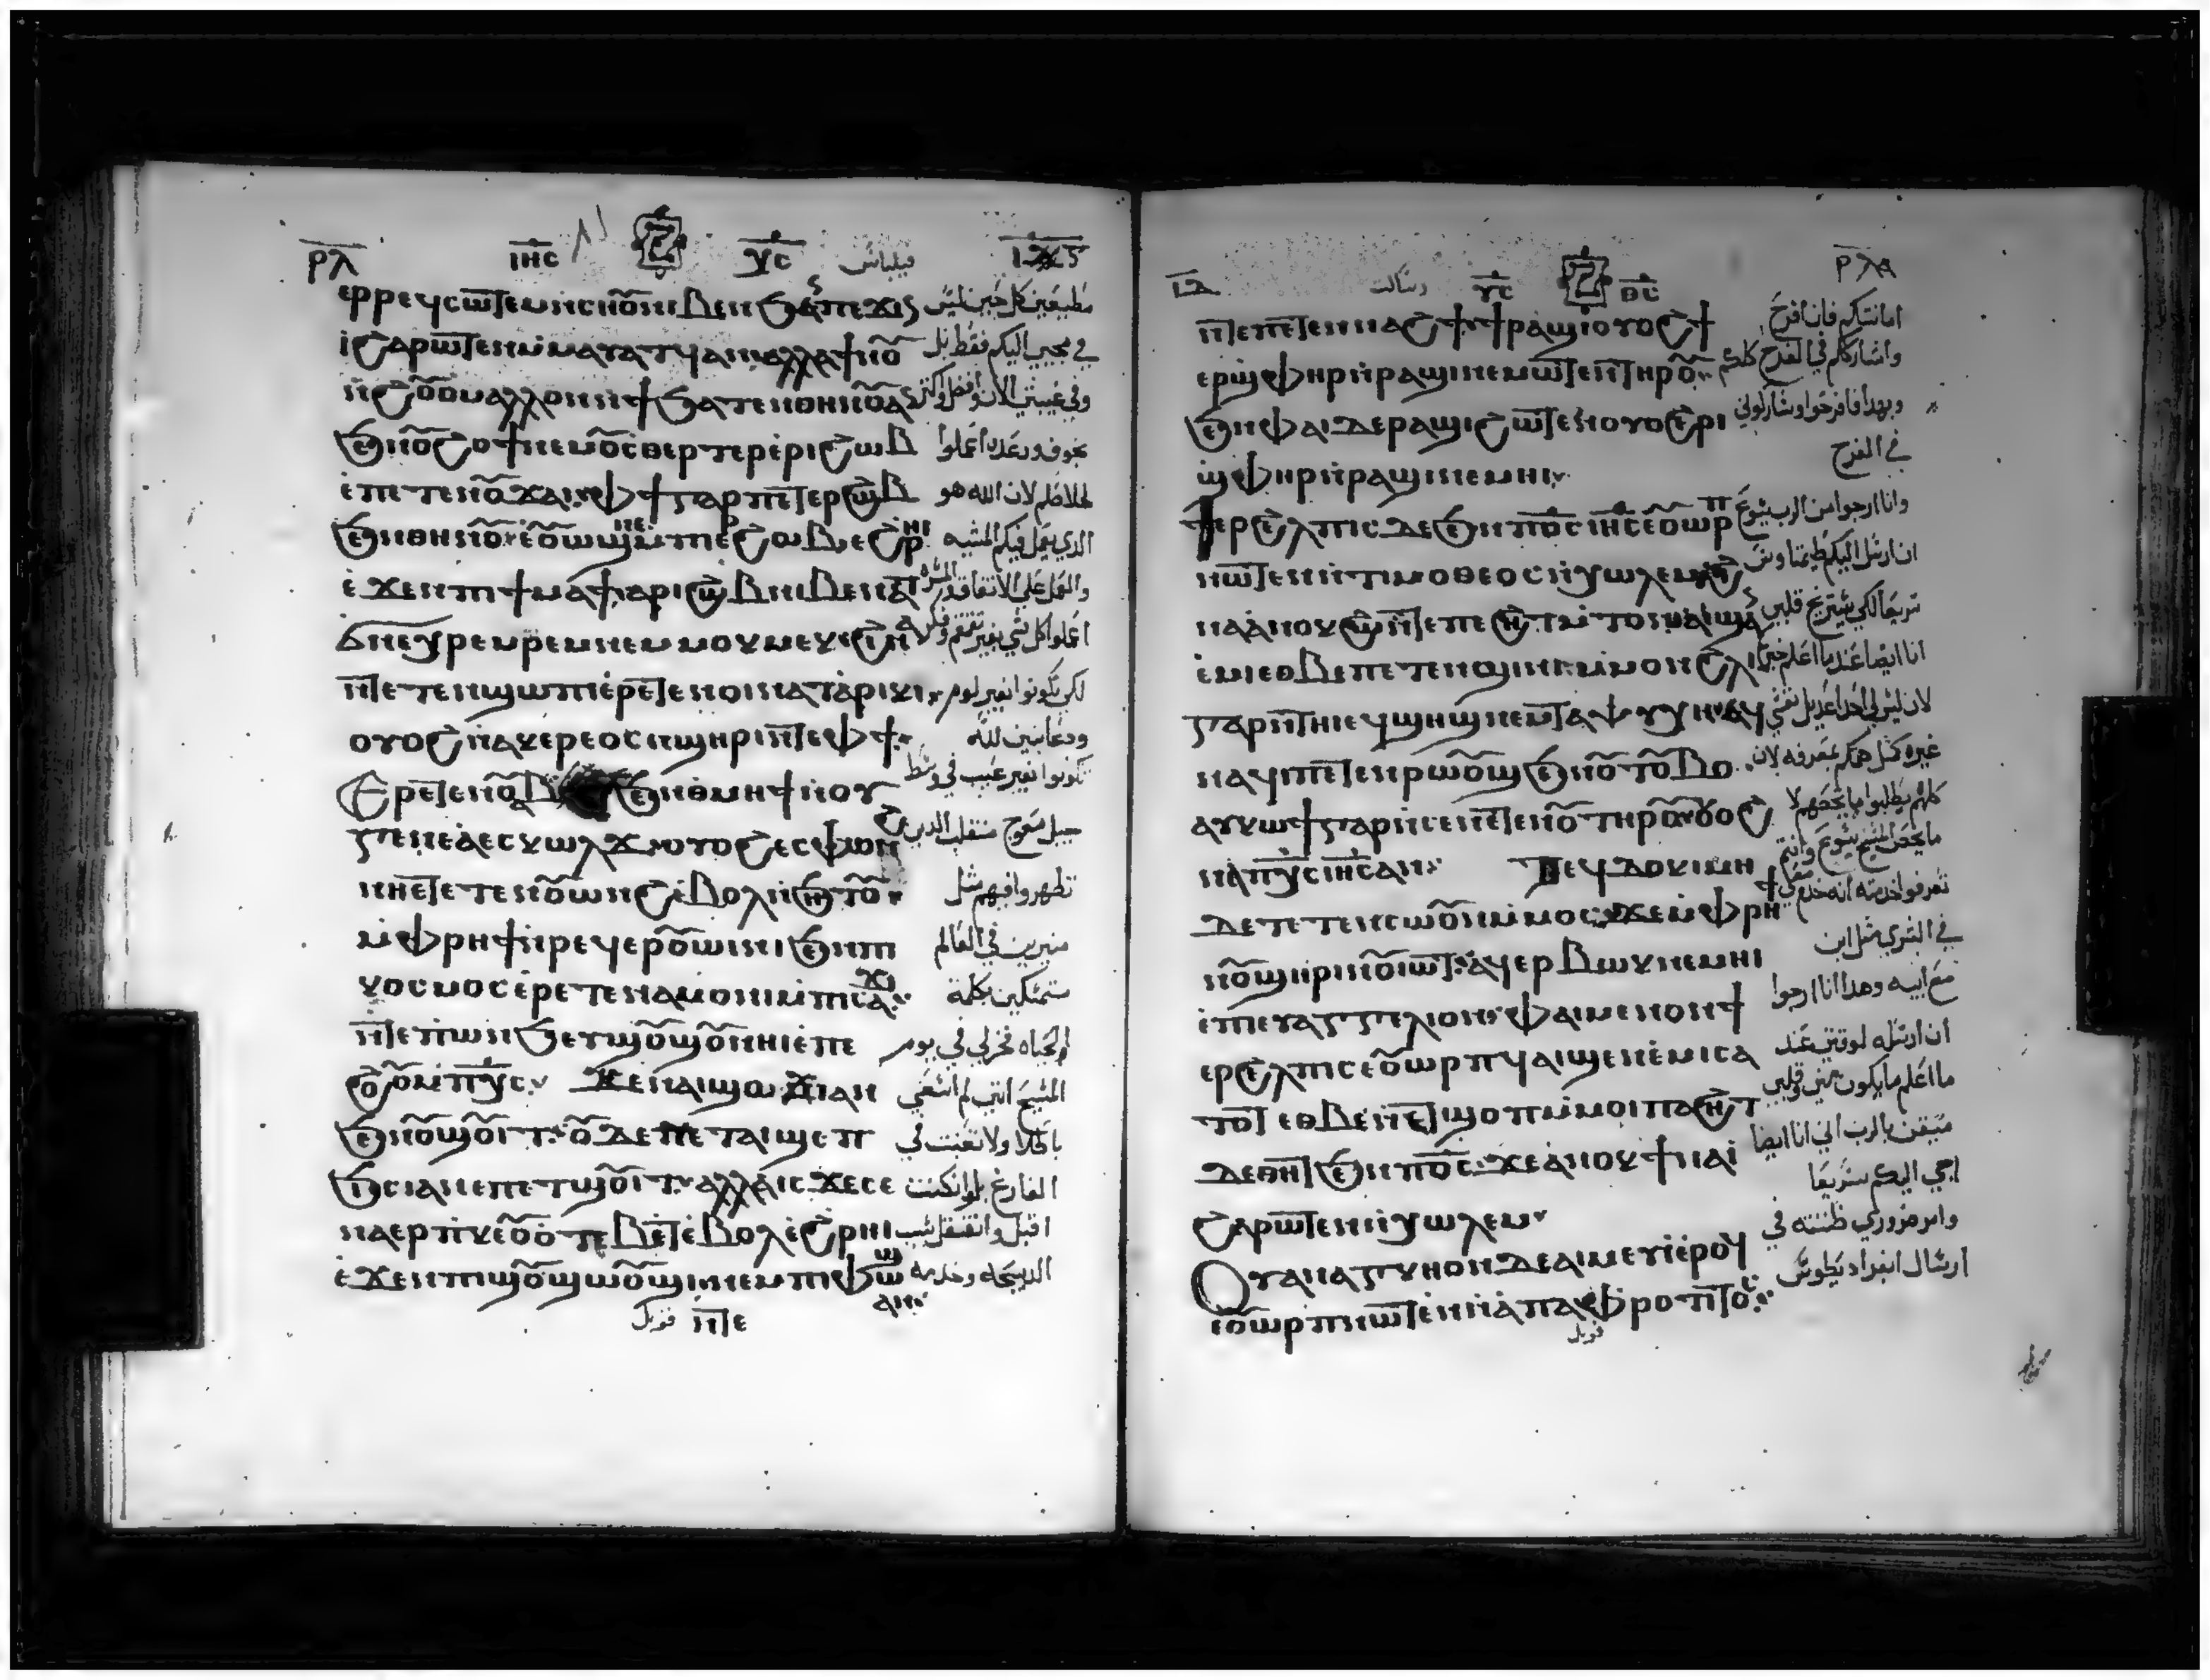 ⲣ̅ⲗ̅ ⲓ̅ⲏ̅ⲥ̅ ⲭ̅ⲥ̅ فيلباس
ⲉⲣⲣⲉϥⲥⲱⲧ̅ⲉⲙⲛ̀ⲥⲛⲟ̅ⲛⲓⲃⲉⲛ ϧⲁ̀ⲡⲉϫⲓⲛ مطيعين كل حين ليس
ⲓ̀ϩⲁⲣⲱⲧ̅ⲉⲛⲙ̀ⲙⲁⲩⲁⲧϥⲁⲛ ⲁⲗⲗⲁϯⲛⲟ̅ في مجيي اليكم فقط بل
ⲛ̀ϩⲟ̅ⲟⲙⲁⲗⲗⲟⲛⲛ̀ϯϧⲁⲧⲉⲛⲑⲏⲛⲟ̅ⲁⲛ وفي غيبتي الان وافضل واكتر
ϧⲉⲛⲟ̅ϩⲟϯⲛⲉⲙⲟ̅ⲥⲑⲉⲣⲧⲉⲣⲁ̀ⲣⲓϩⲱⲃ بخوف ورعده اعملوا
ⲉ̀ⲡⲉⲧⲉⲛⲟ̅ϫⲁⲓ ⲫϯⲅⲁⲣⲡⲉⲧ̅ⲉⲣϩⲱⲃ لخلاصكم لان الله هو
ϧⲉⲛⲑⲏⲛⲟ̅ ⲉ̀ⲟ̅ⲱϣ ⲛⲉⲙⲡⲉⲣϩⲱⲃ ⲉ̀ϩⲣⲏⲓ الذي يعمل فيكم المشيه
ⲉ̀ϫⲉⲛⲡϯⲙⲁϯ ⲁⲣⲓϩⲱⲃⲛⲓⲃⲉⲛ والعمل علي الاتفاق والمسره
ⲭⲣⲉⲙⲣⲉⲙⲛⲉⲙⲙⲟⲕⲙⲉⲕ ⲛ̀ϩⲏⲧ اعملوا كل شي بغير تقمقم وفكر
ⲛ̀ⲧ̅ⲉⲧⲉⲛϣⲱⲡⲓⲉ̀ⲣⲉⲧ̅ⲉⲛⲟⲓⲛⲁⲧⲁ̀ⲣⲓⲕⲓ لكي تكونوا بغير لوم
ⲟⲩⲟϩⲛ̀ⲁⲕⲉⲣⲉⲟⲥⲛ̀ϣⲏⲣⲓⲛ̀ⲧ̅ⲉⲫϯ ودعا بنين لله
ⲉⲣⲉⲧ̅ⲉⲛⲟ̅ⲁⲃ ϧⲉⲛⲑⲙⲏϯⲛ̀ⲟⲩ تكونوا بغير عيب في وسط
ⲅⲉⲛⲉⲁ̀ⲉⲥⲕⲱⲗϫⲟⲩⲟϩⲉⲥⲫⲟⲛϩ جيل معوج منقلب الدين
ⲛⲏⲉⲧ̅ⲉⲧⲉⲛⲟ̅ⲱⲛϩⲉ̀ⲃⲟⲗⲛ̀ϧⲏⲧⲟ̅ تظهروا فيهم مثل
ⲙ̀ⲫⲣⲏϯⲛ̀ⲣⲉϥⲉⲣⲟ̅ⲱⲓⲛⲓϧⲉⲛⲡⲓ منيرين في العالم
ⲕⲟⲥⲙⲟⲥ ⲉ̀ⲣⲉⲧⲉⲛⲁⲙⲟⲛⲓⲙ̀ⲡⲓⲥⲁϫⲓ متمسكين بكلمة
ⲛ̀ⲧ̅ⲉⲡⲱⲛϧⲉⲩϣⲟ̅ϣⲟ̅ⲛⲏⲓⲉ̀ⲡⲉ الحياه فخر لي في يوم
ϩⲟⲟ̅ⲙ̀ⲡⲭ̅ⲥ̅ ϫⲉⲛⲁⲓϣⲟ ϫⲓⲁⲛ المسيح اني لم اسعي
ϧⲉⲛⲟ̅ϣⲟ̅ⲓⲧ ⲟ̅ⲇⲉⲡⲉⲧⲁⲓϣⲉⲡ باطلا ولا تعبت في
ϧⲓⲥⲓⲁⲛⲉⲡⲉⲧϣⲟ̅ⲓⲧ ⲁⲗⲗⲁⲓⲥ ϫⲉⲥⲉ الفارغ بل وان كنت
ⲛⲁⲉⲣⲡⲕⲉⲟ̅ⲟ̀ⲧ ⲃⲉⲧ̅ⲉ̀ⲃⲟⲗⲉ̀ϩⲣⲏⲓ
ⲉ̀ϫⲉⲛⲡⲓϣⲟ̅ϣⲱⲟ̅ϣⲓⲛⲉⲙⲡⲓⲫⲱ الدبيحه وخدمه
ⲛ̀ⲧ̅ⲉ
رسالت ⲭ̅ⲥ̅ ⲑ̅ⲥ̅ ⲣ̅ⲗ̅ⲁ̅
ⲛ̀ⲧ̅ⲉⲡⲉⲧ̅ⲉⲛⲛⲁϩϯ ϯⲣⲁϣⲓⲟⲩⲟϩϯ امانتكم فان افرح
ⲉⲣϣⲫⲏⲣⲛ̀ⲣⲁϣⲓⲛⲉⲙⲱⲧ̅ⲉⲛⲧⲏⲣⲟ̅ واشارككم في الفرح كلكم
ϧⲉⲛⲫⲁⲓⲇⲉⲣⲁϣⲓϩⲱⲧ̅ⲉⲛⲟⲩⲟϩⲁ̀ⲣⲓ وبهدا فافرحوا وشاركوني
ϣⲫⲏⲣⲛ̀ⲣⲁϣⲓⲛⲉⲙⲏⲓ في الفرح
ϯⲉⲣϩⲉⲗⲡⲓⲥⲇⲉϧⲉⲛⲡⲟ̅ⲥ̅ ⲓ̅ⲏ̅ⲥ̅ⲉ̀ⲟ̅ⲱⲣⲡ وانا ارجوا من الرب يسوع
ⲛⲱⲧ̅ⲉⲛⲛ̀ⲧⲓⲙⲟⲑⲉⲟⲥⲛ̀ⲭⲱⲗⲉⲙ ان ارسل اليكم طيماتاوس
ⲛⲁⲁ̀ⲛⲟⲕϩⲱⲛ̀ⲧ̅ⲉⲡⲉϩⲏⲧⲙ̀ⲧⲟⲛ ⲁⲓϣⲁⲛ سريعا لكي يستريح قلبي
ⲉ̀ⲙⲓⲉⲑⲃⲉⲡⲉⲧⲉⲛϣⲓⲛⲓ ⲙ̀ⲙⲟⲛϩⲗⲓ انا ايضا عند ما اعلم خبركم
ⲅⲁⲣⲛ̀ⲧⲏⲓⲉϥϣⲏϣⲛⲉⲙⲧⲁⲯⲩⲭⲏ لان ليس لي احد اعديل نفسي
ⲛⲁϥⲓⲡⲉⲧ̅ⲉⲛⲣⲱⲟ̅ϣϧⲉⲛⲟ̅ⲧⲟ̅ⲃⲟ
ⲁⲩⲭⲱϯⲅⲁⲣⲛ̀ⲥⲉ ⲛ̀ⲧ̅ⲉⲛⲟ̅ ⲧⲏⲣⲟ̅ⲟⲩⲟϩ كلهم يطلبوا ما يخصهم لا
ⲛⲁⲡⲭ̅ⲥ̅ⲓ̅ⲏ̅ⲥ̅ⲁⲛ ⲧⲉϥⲇⲟⲕⲓⲙⲏ ما يخص المسيح يسوع وانتم
ⲇⲉⲧⲉⲧⲉⲛⲥⲱⲟ̅ⲛⲙ̀ⲙⲟⲥ ϫⲉⲙ̀ⲫⲣⲏϯ تعرفوا خدمته انه خدم معي
ⲛⲟ̅ϣⲏⲣⲓⲛⲟ̅ⲓⲱⲧ ⲁϥⲉⲣⲃⲱⲕⲛⲉⲙⲏⲓ في البشري مثل ابن
ⲉ̀ⲡⲉⲩⲁⲅⲅⲉⲗⲓⲟⲛ ⲫⲁⲓⲙⲉⲛⲟⲛϯ مع ابيه وهدا انا ارجوا
ⲉⲣϩⲉⲗⲡⲓⲥⲉ̀ⲟ̅ⲱⲣⲡϥⲁⲓϣⲉⲛⲉ̀ⲙⲓⲥⲁ ان ارسله لوقتي عند
ⲧⲟⲧ ⲉⲑⲃⲉⲛⲉⲧ̅ϣⲟⲡⲙ̀ⲙⲟⲓⲡⲁϩⲏⲧ ما اعلم ما يكون مني وقلبي
ⲇⲉⲑⲏⲧϧⲉⲛⲡⲟ̅ⲥ̅ ϫⲉⲁ̀ⲛⲟⲕϯⲛⲁⲓ̀ متيقن بالرب اني انا ايضا
ϩⲁⲣⲱⲧ̅ⲉⲛⲛ̀ⲭⲱⲗⲉⲙ اجي اليكم سريعا
ⲟⲩⲁⲛⲁⲅⲕⲉⲟⲛⲇⲉⲁⲓⲙⲉⲩⲓ̀ⲉ̀ⲣⲟϥ وامر ضروري ظننته في
ⲉ̀ⲟ̅ⲱⲣⲡⲛⲱⲧ̅ⲉⲛⲛ̀ⲉ̀ⲡⲁⲫⲣⲟⲇⲓⲧⲟⲥ ارسال ابفراديطوس
قوبل